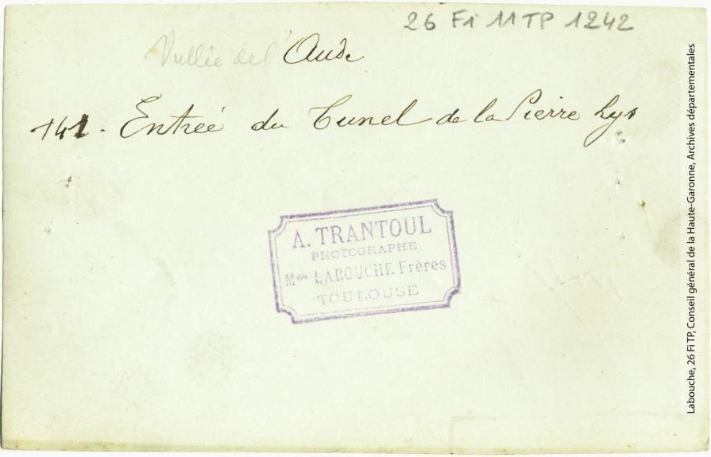 26 Fi 11 TP 1242
Vallée de l'Aude
141. Entrée du Tunel de la Pierre Lys
A. TRANTOUL
PHOTOGRAPHE
Mon LABOUCHE Frères
TOULOUSE
Labouche, 26 Fi TP, Conseil général de la Haute-Garonne, Archives départementales